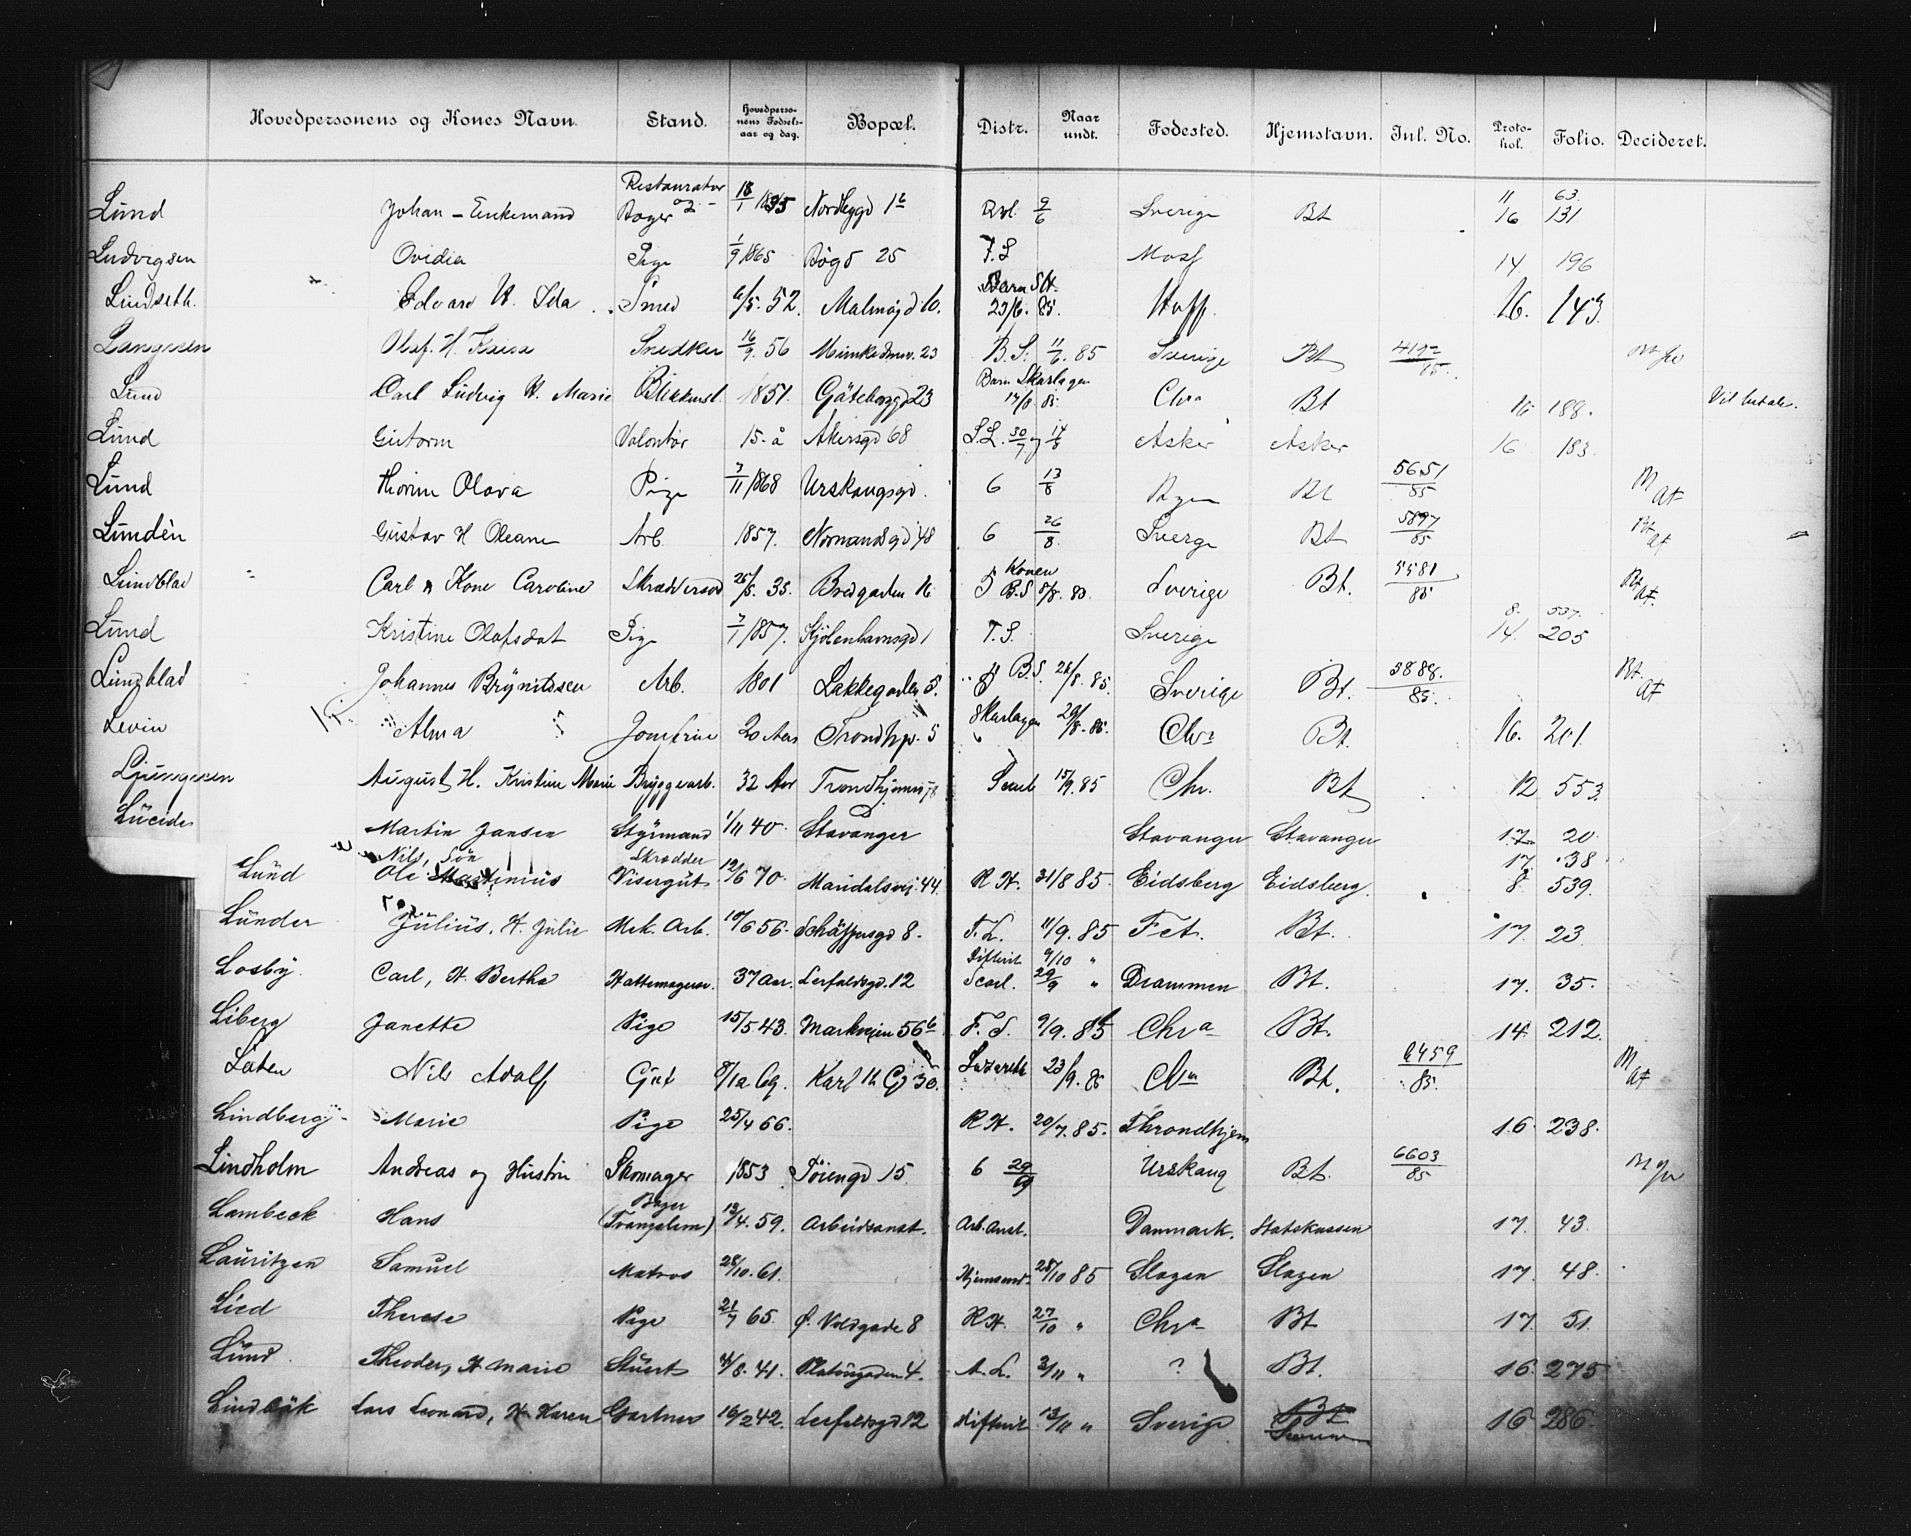 Hovedpersonens og Kones Navn. Stand. Hovedperso-nens Fødsels-aar og dag. Bopæl. Distr. Naar undt. Fødested. Hjemstavn. Inl. No. Proto-kol. Folio. Decideret.
Lund Johan - Enkemand Restauratør Bager 18/1 1835 Nordbygd 1b 9/6 Sverige Bt 11 63 16 131
Ludvigsen Ovidia Pige 1/9 1865 Bøgd 25 F.L Moss 14 196
Lindseth Edvard H. Ida Smed 6/5. 52. Malmøgd 10. Barn 23/6. 85. Hoff. 16. 143.
Olaf. H. Snedker 16/9. 56 23 B.S. 11/6. 85 Sverige Bt 15.
Lund Carl Ludvig H. Marie Blikkensl. 1851. Göteborggd 23 Barn Skarlagen 17/8 85. Chra Bt 16 188. Vil betale.
Lund Guttorm Volontør 15 å Akersgd 68 S.L. 30/7 og 14/8 Asker Asker 16 183.
Lund Thorine Olava Pige 7/11 1868 Urskougsgd. 6 13/8 Byen Bt 5651/85 M At
Lundèn Gustav H Oleane Arb. 1857. Normandsgd 48 6 26/8. Sverge Bt 5897/85 Bt At
Lundblad Carl & Kone Caroline Skræddersvd 25/5. 35. Bredgaden 16 Konen B.S 5/8. 83. Sverige Bt. 5581/85 Bt. At.
Lund Kristine Olafsdat Pige 7/1 1857. Kjøbenhavnsgd 1 T.S. Sverige 8. 537. 14. 205
Lunzblad Johannes Brynitssen Arb. 1801 Lakkegaden 5. B.S. 26/8. 85. Sverige Bt. 3888./85. Bt. At
Levin Alma Jomfrue 20 Aars Trondhjv. 5 Skarlagen 29/8. 85. Chra Bt. 16. 201.
Ljungreen August H. Kristine Marie Bryggearb. 32 Aar Scarl 15/9. 85 Chr. Bt 12 553.
Martin Jansen Styrmand 1/11 40. Stavanger Stavanger Stavanger 17 20
Lund Nils, Søn Ole Martinius Skrædder Visergut 12/6 70. Mandalsvej 44. R H. 31/8 85. Eidsberg Eidsberg. 17. 38 8. 539.
Lunder Julius, H. Julie Mek. Arb. 10/6 56. Schäffersgd 8. T.L. 11/9. 85 Fet. Bt. 17. 23
Losby Carl, H. Bertha Hattemager 37 Aar. Lerfaldsgd. 12 Difterit 9/10 " Scarl. 29/9 " Drammen Bt. 17. 35.
Liberg Janette Pige 15/5 43. Markveien 56b F.S. 9/9. 85 Chra Bt. 14. 212.
Nils Adolf Gut 8/12 69. Karl 12 Gd 30. Lazareth 23/9. 85 Chra Bt. 6459/85. M At
Lindberg Marie Pige 25/4 66. R H. 20/7. 85. Throndhjem 16. 238.
Lindholm Andreas og Hustru Skomager 1853 Tøiengd 15. 6 29/9 Urskaug Bt. 6603/85
Lambeck Hans Bager (Tvangslem) 13/4. 59. Arbeidsanst. Arb. Anst. Danmark. Statskassen 17. 43.
Lauritzen Samuel Matros 28/10. 61. Hjemsend. 28/10 85 Slagen Slagen 17. 48.
Lied Therese Pige 21/7 65. Ø. Voldgade 8 R H. 27/10 " Chra Bt 17. 51.
Lund Theodor, H Marie Stuert 4/8. 41. Platousgaden 4. A. L. 3/11 " ? Bt. 16. 275
Lindbäk Lars Leonard, H Karen Gartner 16/2 42. Lerfaldsgd 12 Difterit 13/11 " Sverige Bt 16. 286.